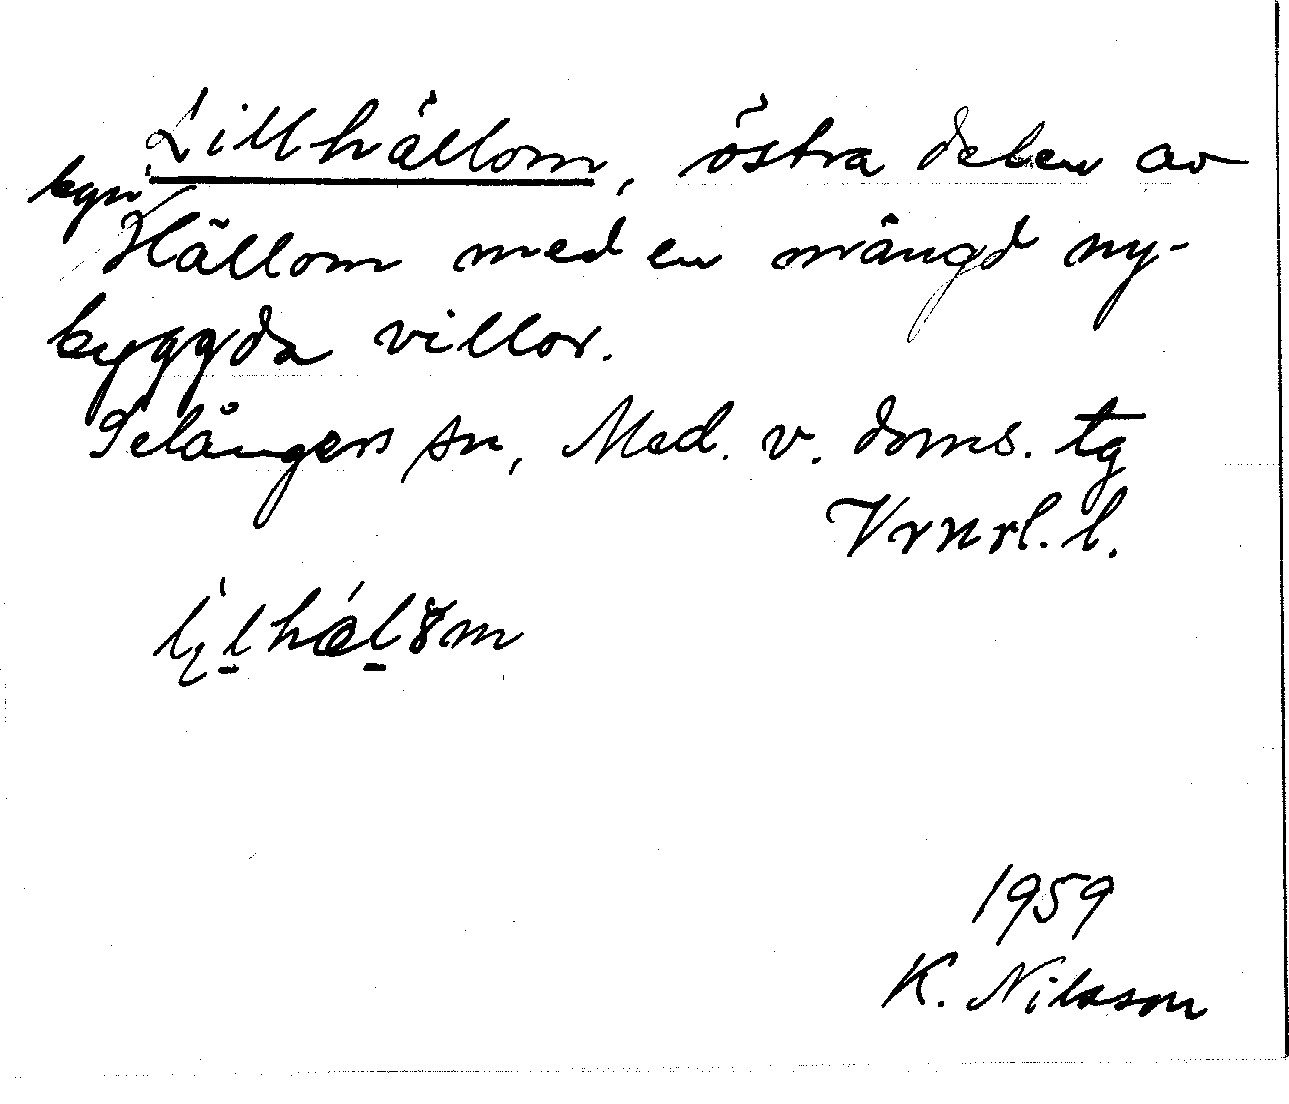 Lillhällom, östra delen av
byn
Hällom med en mängd ny-
byggda villor.
Selångers sn, Med. v. doms. tg
Vrnrl. l.
1959
K. Nilsson